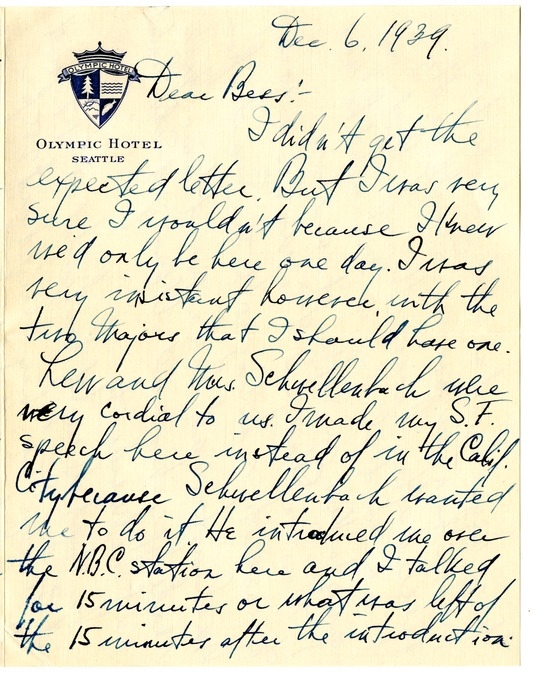 Dec. 6, 1939.
OLYMPIC HOTEL
Dear Bess:-
I didn't get the
OLYMPIC HOTEL
SEATTLE
expected letter. But I was very
sure I wouldn't because I knew
we'd only be here one day. I was
very insistant however with the
two Majors that I should have one.
Lew and Mrs. Schwellenbach were
very cordial to us. I made my S.F.
speech here instead of in the Calif.
City because Schwellenbach wanted
me to do it. He introduced me over
the N.B.C. station here and I talked
for 15 minutes or what was left of
the 15 minutes after the introduction.